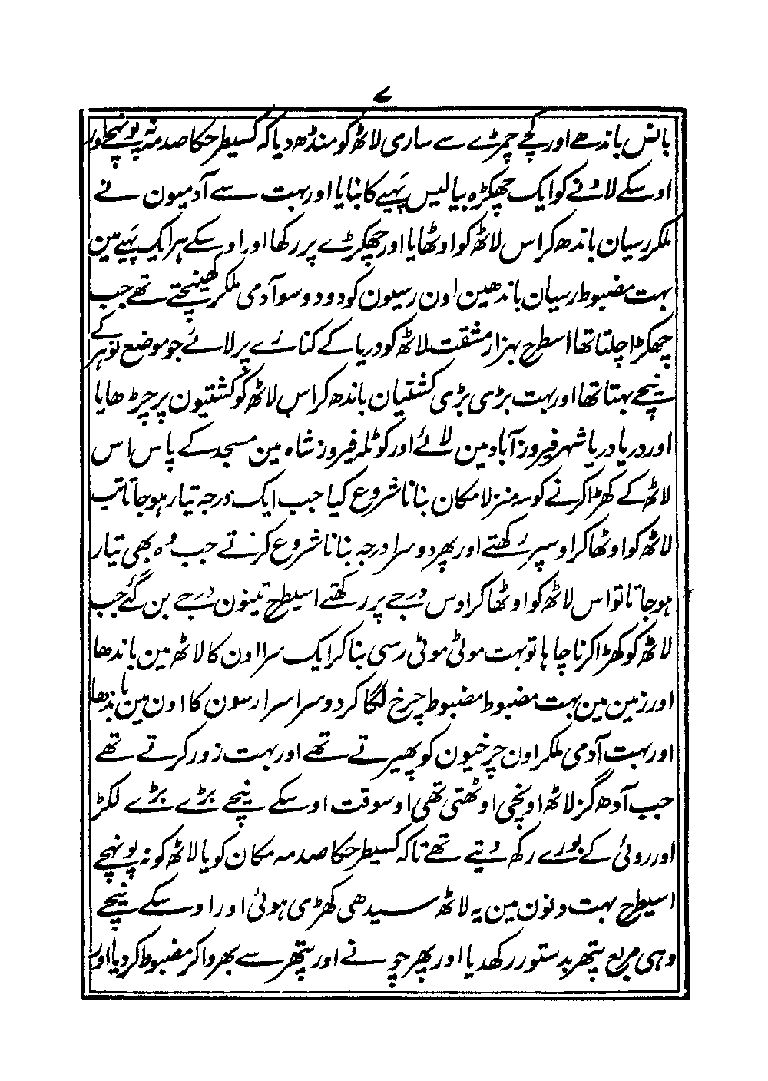 ۷
بانس باندھے اور کچے چمڑے سے ساری لاٹھ کو منڈھ دیا کہ کسیطرحکا صدمہ نہ پونہچے اور
اوسکے لانے کو ایک چھکڑہ بیالیس پہیے کا بنایا اور بہت سے آدمیون نے
ملکر رسیان باندھ کر اس لاٹھ کو اوٹھایا اور چھکڑے پر رکھا اور اوسکے ہر ایک پہیے مین
بہت مضبوط رسیان باندھین اون رسیون کو دو دو سو آدمی ملکر کھینچتے تھے جب
چھکڑا چلتا تھا اسطرح بہزار مشقت لاٹھ کو دریا کے کنارے پر لائے جو موضع نوہر کے
نیچے بہتا تھا اور بہت بڑی بڑی کشتیان باندھ کر اس لاٹھ کو کشتیون پر چڑھایا
اور دریا دریا شہر فیروزآباد مین لائے اور کوٹلہ فیروز شاہ مین مسجد کے پاس اس
لاٹھ کے کھڑا کرنے کو سہ منزلا مکان بنانا شروع کیا جب ایک درجہ تیار ہو جاتا تب
لاٹھ کو اوٹھا کر اوسپر رکھتے اور پھر دوسرا درجہ بنانا شروع کرتے جب وہ بھی تیار
ہو جاتا تو اس لاٹھ کو اوٹھا کر اوس درجے پر رکھتے اسیطرح تینون درجے بن گئے جب
لاٹھ کو کھڑا کرنا چاہا تو بہت موٹی موٹی رسی بنا کر ایک سرا اون کا لاٹھ مین باندھا
اور زمین مین بہت مضبوط مضبوط چرخ لگا کر دوسرا سرا رسون کا اون مین باندھا
اور بہت آدمی ملکر اون چرخیون کو پھیرتے تھے اور بہت زور کرتے تھے
جب آدھ گز لاٹھ اونچی اوٹھتی تھی اوسوقت اوسکے نیچے بڑے بڑے لکڑ
اور روئی کے بورے رکھ دیتے تھے تاکہ کسیطرحکا صدمہ مکان کو یا لاٹھ کو نہ پونہچے
اسیطرح بہت دنون مین یہ لاٹھ سیدھی کھڑی ہوئی اور اوسکے نیچے
وہی مربع پتھر بدستور رکھدیا اور پھر چونے اور پتھر سے بھروا کر مضبوط کر دیا اور